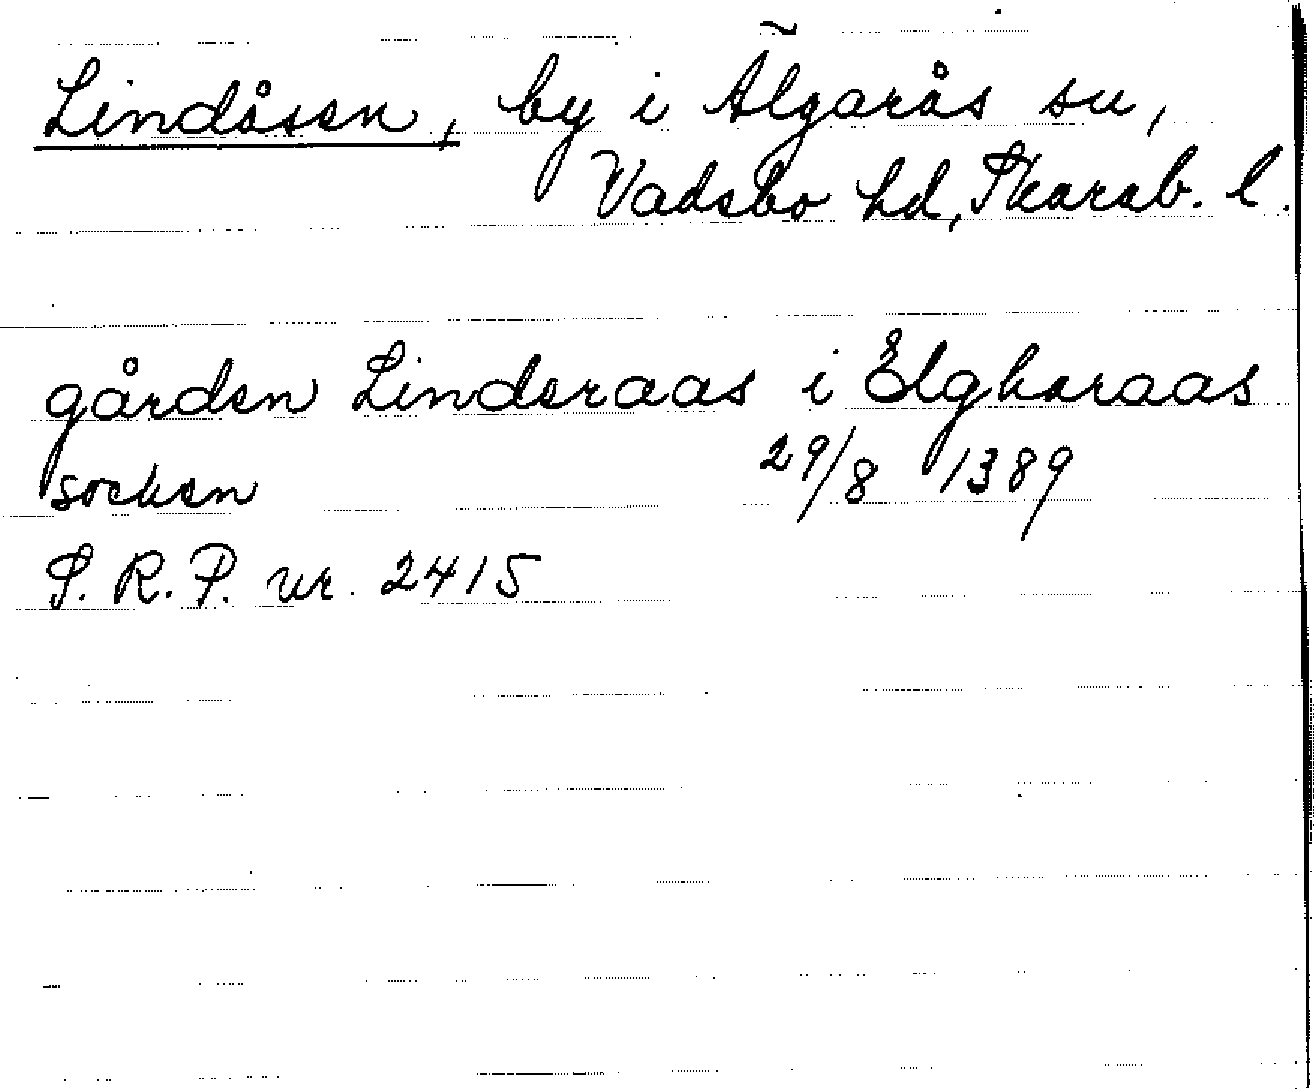 Lindåsen, by i Älgarås sn,
Vadsbo hd, Skarab. l.
gården Linderaas i Elgharaas
socken 29/8 1389
S. R. P. nr. 2415